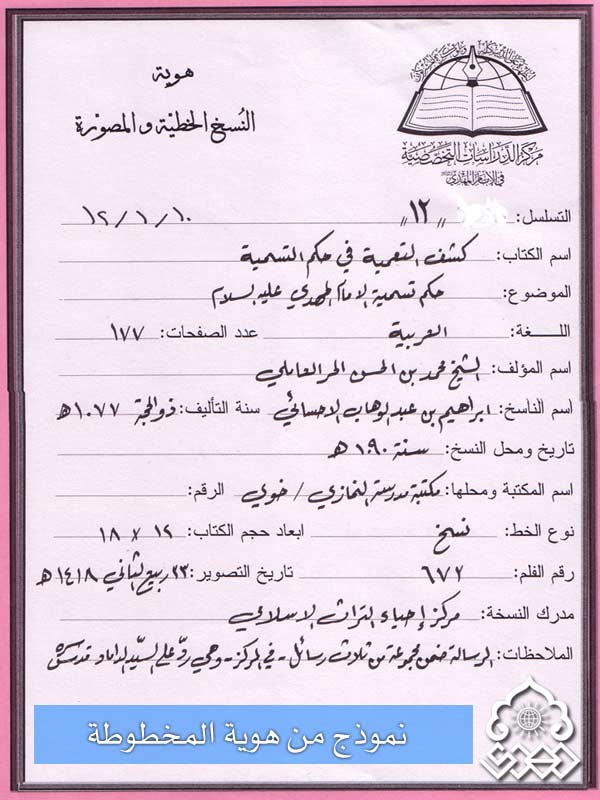 هوية
النسخ الخطية والمصورة
مركز الدراسات التخصصية
في الإمام المهدي
التسلسل: "١٢" ١٢/١/١٠
اسم الكتاب: كشف التعمية في حكم التسمية
الموضوع: حكم تسمية الامام المهدي عليه السلام
اللغة: العربية عدد الصفحات: ١٧٧
اسم المؤلف: الشيخ محمد بن الحسن الحر العاملي
اسم الناسخ: ابراهيم بن عبد الوهاب الاحسائي سنة التأليف: ذو الحجة ١٠٧٧ هـ
تاريخ ومحل النسخ: سنة ١٠٩٠ هـ
اسم المكتبة ومحلها: مكتبة مدرسة النمازي / خوي الرقم:
نوع الخط: نسخ ابعاد حجم الكتاب: ١٢ × ١٨
رقم الفلم: ٦٧٢ تاريخ التصوير: ٢٣ ربيع الثاني ١٤١٨ هـ
مدرك النسخة: مركز إحياء التراث الاسلامي
الملاحظات: الرسالة ضمن مجموعة من ثلاث رسائل - في المركز - وهي ردّ على السيّد الداماد قدس سره
نموذج من هوية المخطوطة